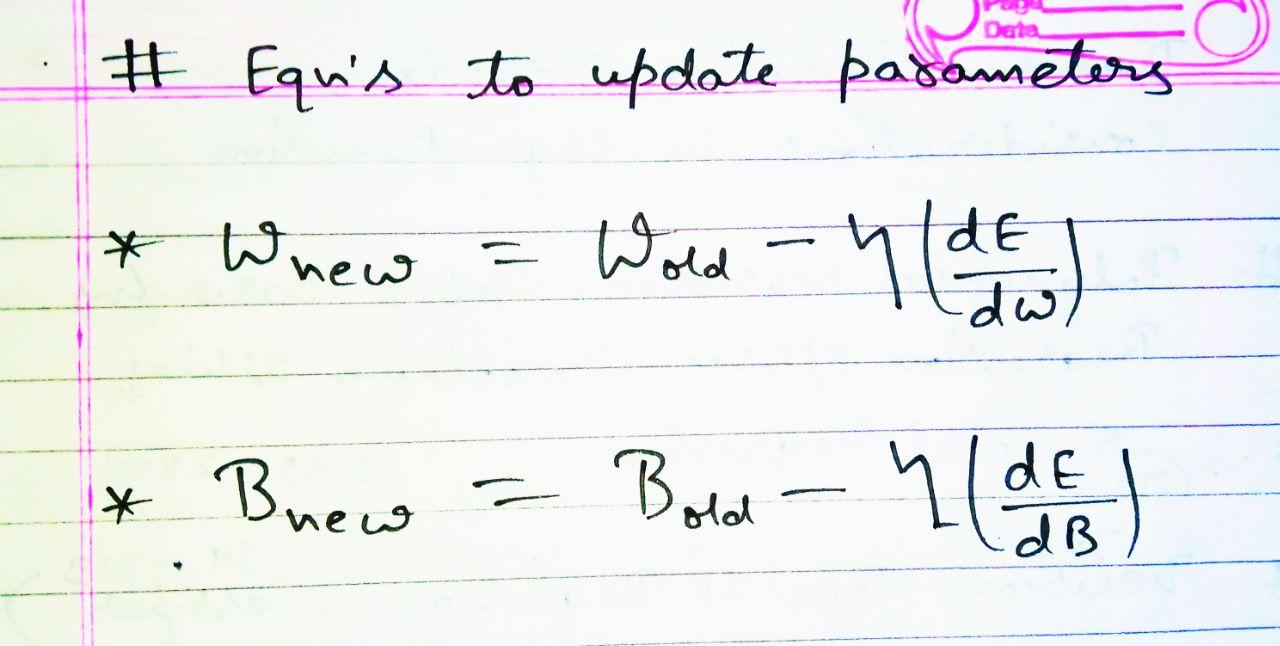 Page
Date
# Equ's to update parameters
* Wnew = Wold - η(dE/dw)
* Bnew = Bold - η(dE/dB)